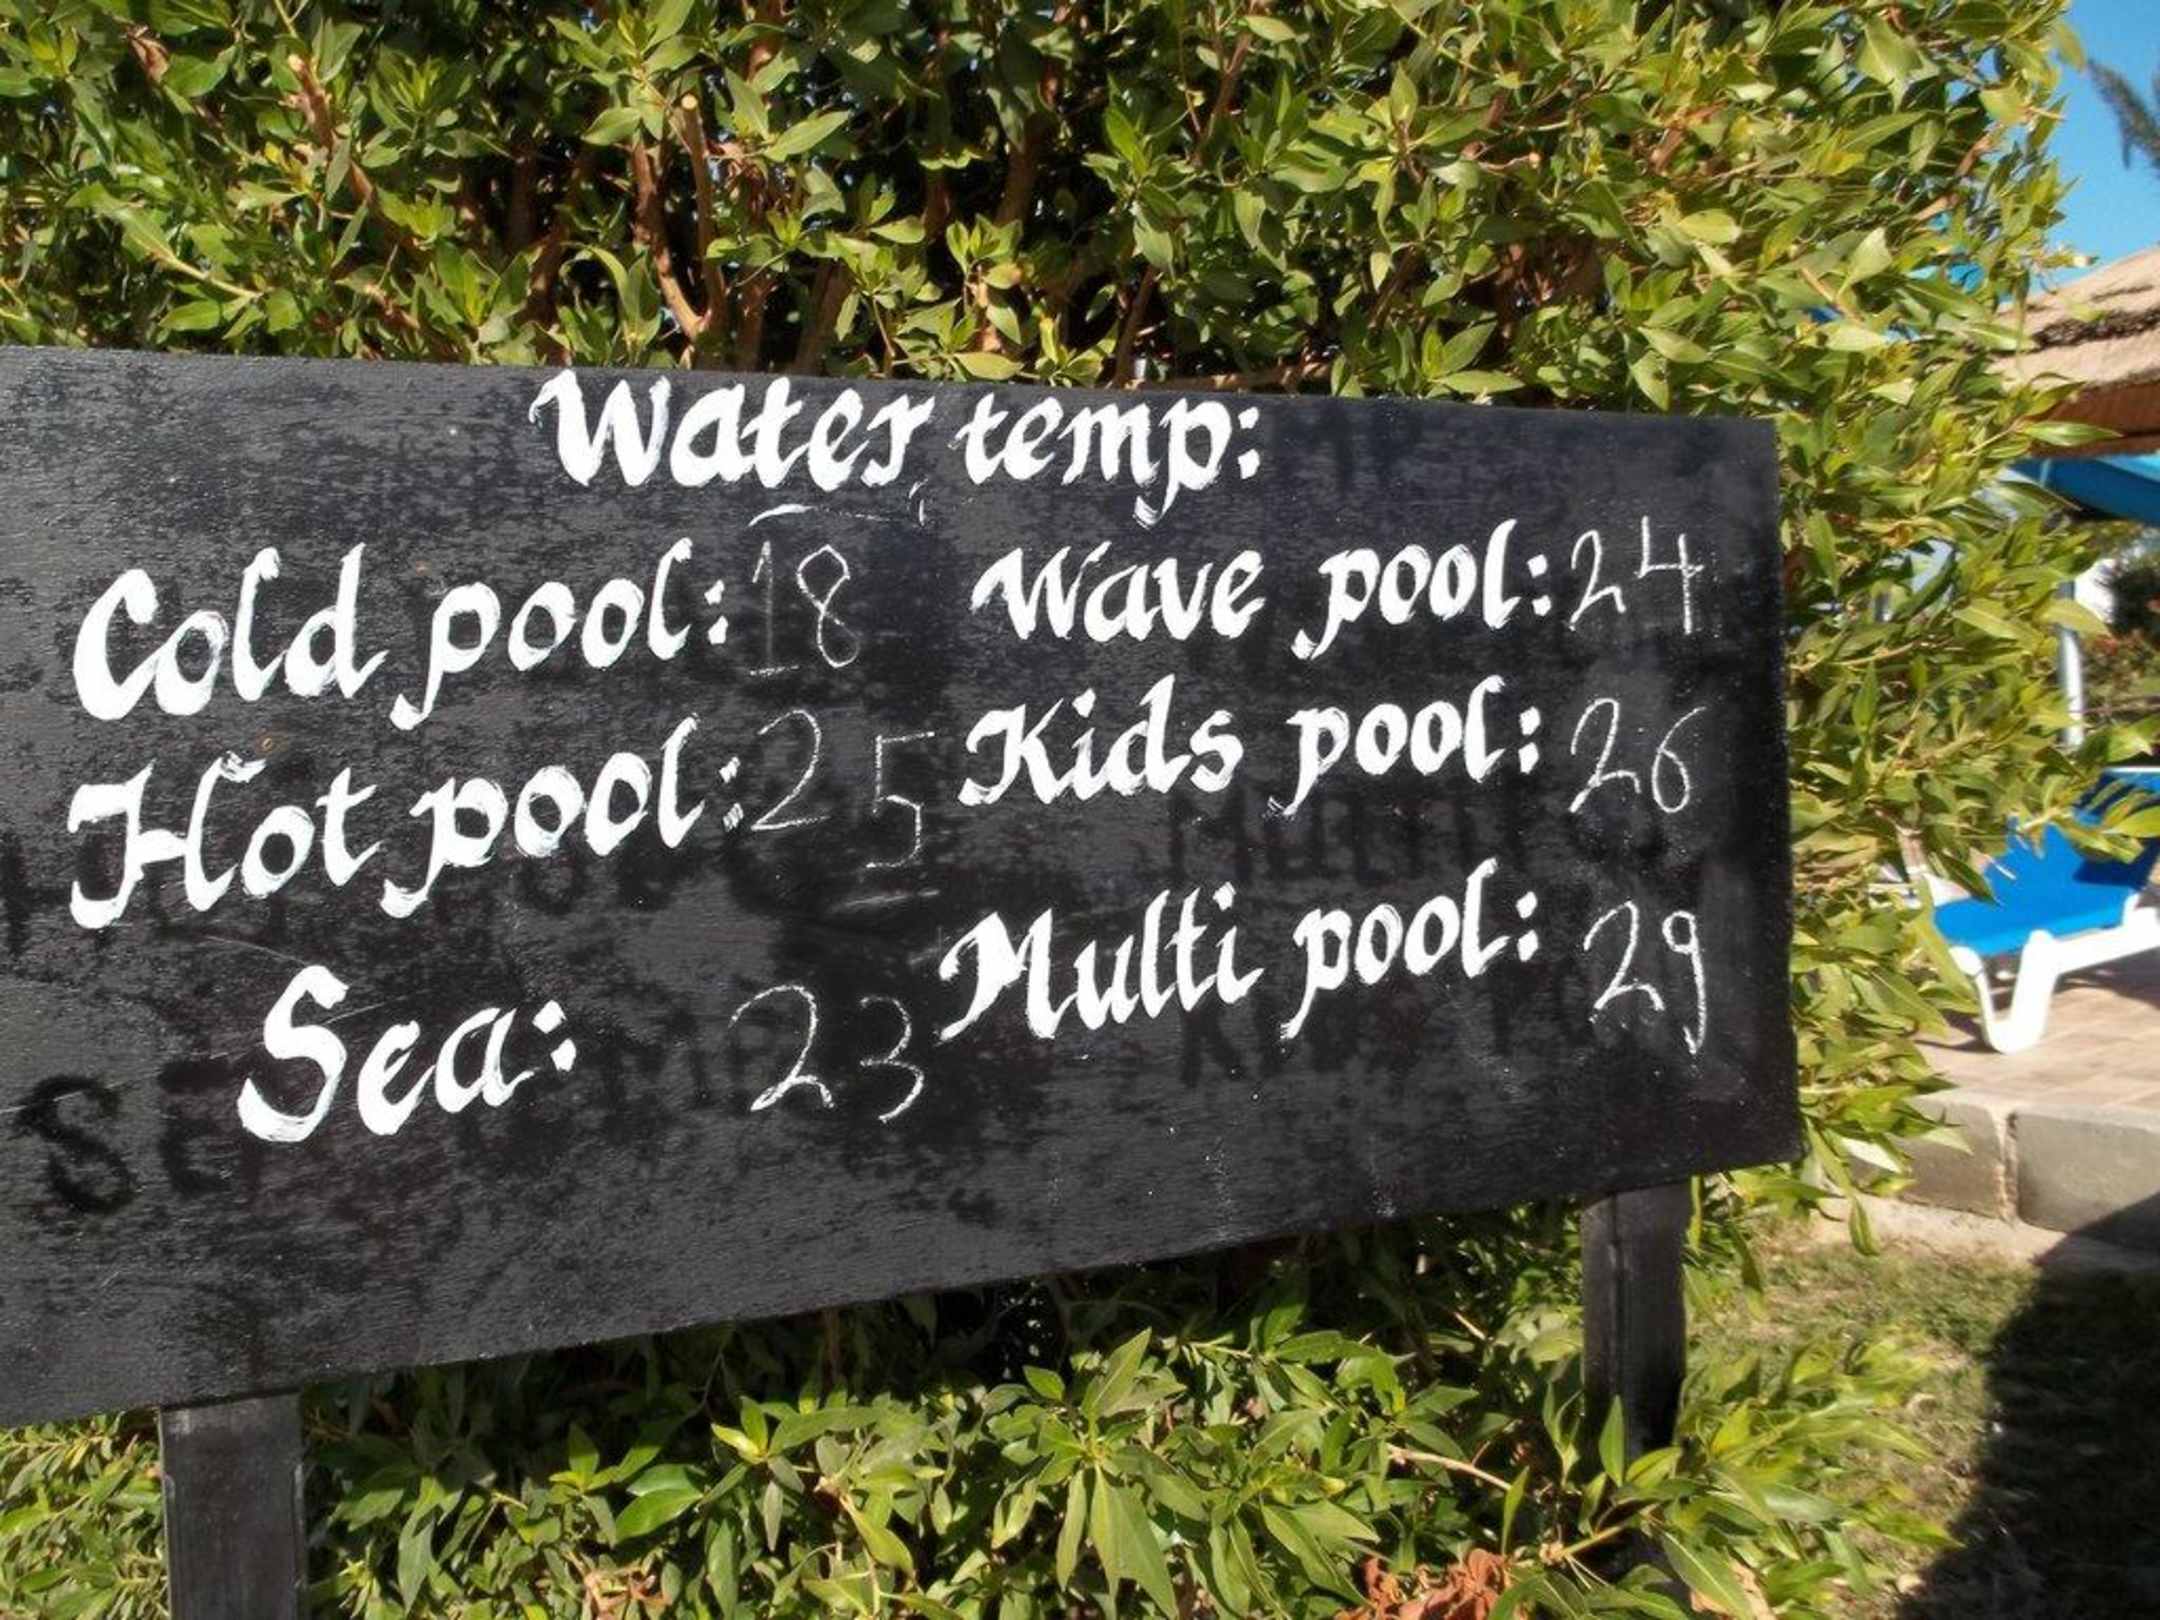 Water temp:
Cold pool: 18
Hot pool: 25
Sea: 23
Wave pool: 24
Kids pool: 26
Multi pool: 29